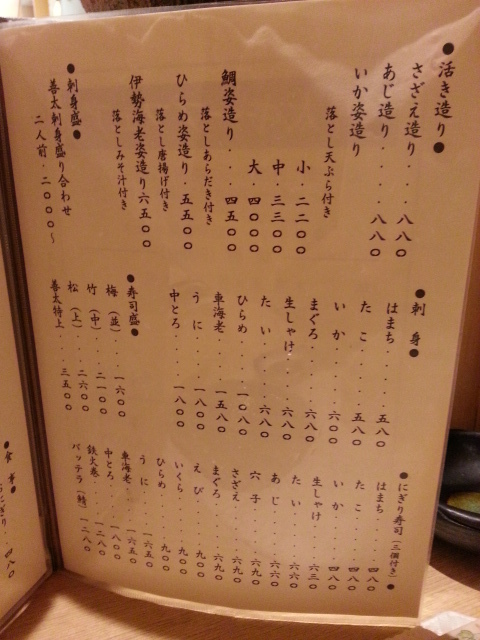 ●活き造り●
さざえ造り・・八八〇
あじ造り・・・・八八〇
いか姿造り
小・二二〇〇
中・三三〇〇
大・四〇〇〇
落とし天ぷら付き
鯛姿造り・・・四五〇〇
落としあらだき付き
ひらめ姿造り・・五五〇〇
落とし唐揚げ付き
伊勢海老姿造り六五〇〇
落としみそ汁付き
●刺身盛●
善太刺身盛り合わせ
二人前・二〇〇〇〜
●刺身●
はまち・・・・五八〇
たこ・・・・五八〇
いか・・・・六〇〇
まぐろ・・・・六八〇
生しゃけ・・・・六八〇
たい・・・・六八〇
ひらめ・・・一〇八〇
車海老・・・一五八〇
うに・・・・一八〇〇
中とろ・・・・一八〇〇
●寿司盛●
梅(並)・・一六〇〇
竹(中)・・二一〇〇
松(上)・・二六〇〇
善太特上・・・三五〇〇
●にぎり寿司(三個付き)●
はまち・・・・四八〇
たこ・・・・四八〇
いか・・・・四八〇
生しゃけ・・・六三〇
たい・・・・六六〇
あじ・・・・六六〇
穴子・・・・六九〇
さざえ・・・・六九〇
まぐろ・・・・六九〇
えび・・・・九〇〇
いくら・・・・九〇〇
ひらめ・・・・九〇〇
うに・・・・一六五〇
車海老・・・一六五〇
中とろ・・・・一八〇〇
鉄火巻・・・・一二八〇
バッテラ(鯖)・一二八〇
●食事●
おにぎり・・四八〇